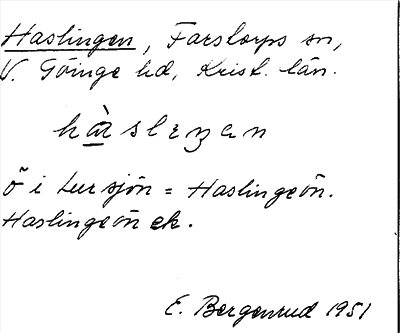 Haslingen, Farstorps sn,
V. Göinge hd, Krist. län.
ö i Lursjön = Haslingeön.
Haslingeön ek.
E. Bergenrud 1951